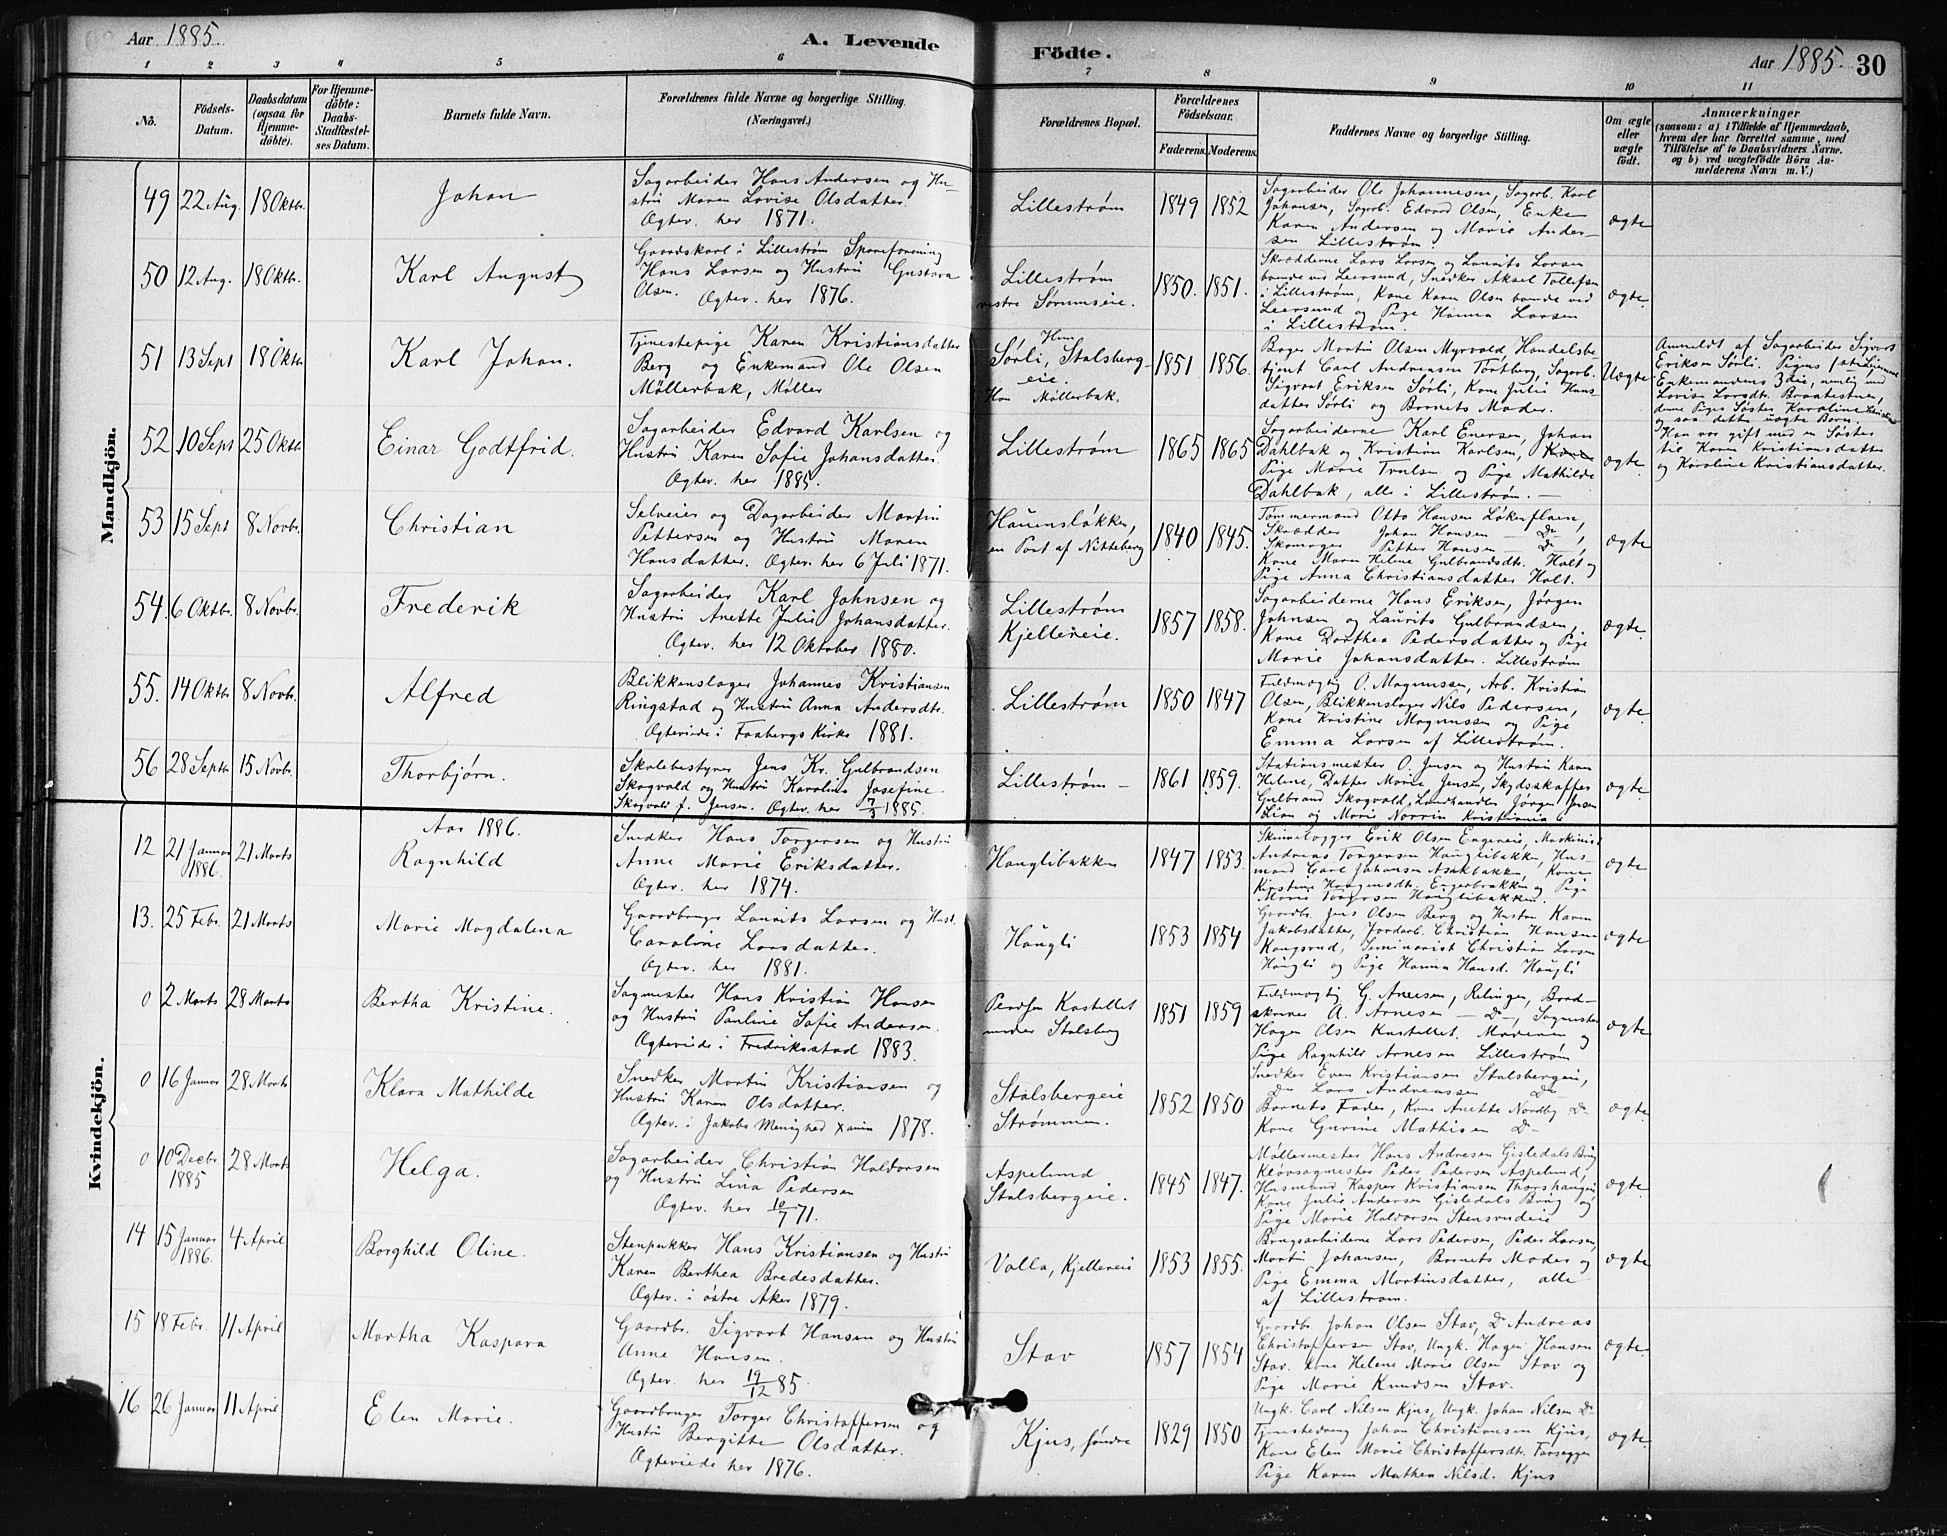 Aar 1885.
A. Levende
Födte.
Aar 1885. 30
1 2 3 4 5 6 7 8 9 10 11
No.
Födsels-Datum.
Daabsdatum (ogsaa for Hjemme-döbte).
For Hjemme-döbte: Daabs-Stadfæstel-ses Datum.
Barnets fulde Navn.
Forældrenes fulde Navne og borgerlige Stilling.
(Næringsvei.)
Forældrenes Bopæl.
Forældrenes Födselsaar.
Faderens. Moderens.
Faddernes Navne og borgerlige Stilling.
Om ægte eller uægte födt.
Anmærkninger
(saasom: a) i Tilfælde af Hjemmedaab,
hvem der har forrettet samme, med
Tilföielse af to Daabsvidners Navne.
og b) ved uægtefödte Börn An-
melderens Navn m. V.)
Mandkjön.
49 22 Aug. 18 Oktbr. Johan
Sagarbeider Hans Andersen og Hu-
stru Maren Lovise Olsdatter.
Ægtev. her 1871.
Lillestrøm 1849 1852
Sagarbeider Ole Johannesen, Sagarb. Karl
Johansen, Sagarb. Edvard Olsen, Enke
Karen Andersen og Marie Ander-
sen Lillestrøm.
ægte
50 12 Aug. 18 Oktbr. Karl August
Gaardskarl i Lillestrøm Spareforening
Hans Larsen og Hustru Gustava
Olsen. Ægtev. her 1876.
Lillestrøm
vestre Sørumseie.
1850. 1851.
Skrædderne Lars Larsen og Laurits Larsen
boende ved Leersund, Snedker Aksel Tollefsen
i Lillestrøm, Kone Karen Olsen boende ved
Leersund og Pige Hanna Larsen
i Lillestrøm.
ægte
51 13 Sept 18 Oktbr Karl Johan.
Tjenestepige Karen Kristiansdatter
Berg og Enkemand Ole Olsen
Møllerbak, Møller
Hun
Sørli, Stalsberg-
eie.
Han Møllerbak.
1851 1856.
Bager Martin Olsen Myrvold Handelsbe-
tjent Carl Andreasen Tortberg, Sagarb.
Sigvart Eriksen Sørli, Kone Julie Hans-
datter Sørli og Barnets Moder.
Uægte
Anmeldt af Sagarbeider Sigvart
Eriksen Sørli. Pigens
Enkemandens 3die, nemlig med
Lovise Larsdtr. Braatestuen,
denne Piges Søster Karoline
og saa dette uægte Barn.
Han var gift med en Søster
til Karen Kristiansdatter
og Karoline Kristiansdatter.
52 10 Sept 25 Oktbr Einar Godtfrid.
Sagarbeider Edvard Karlsen og
Hustru Karen Sofie Johansdatter.
Ægtev. her 1885.
Lillestrøm 1865 1865
Sagarbeiderne Karl Enersen, Johan
Dahlbak og Kristian Karlsen, Kone
Pige Marie Trulsen og Pige Mathilde
Dahlbak, alle i Lillestrøm.—
ægte
53 15 Sept 8 Novbr. Christian
Selveier og Dagarbeider Martin
Pettersen og Hustru Maren
Hansdatter. Ægtev. her 6 Juli 1871.
Hauensløkken,
en Part af Nitteberg
1840 1845.
Tømmermand Otto Hansen Løkenflaen,
Skrædder Johan Hansen — Do,
Skomager Petter Hansen — Do,
Kone Maren Helene Gulbrandsdtr. Holt og
Pige Anna Christiansdatter Holt.
ægte
54. 6 Oktbr. 8 Novbr. Frederik
Sagarbeider Karl Johnsen og
Hustru Anette Julie Johansdatter.
Ægtev. her 12 Oktober 1880.
Lillestrøm
Kjellereie.
1857 1858.
Sagarbeiderne Hans Eriksen, Jørgen
Johnsen og Laurits Gulbrandsen,
Kone Dorthea Pedersdatter og Pige
Marie Johansdatter. Lillestrøm
ægte.
55. 14 Oktbr 8 Novbr. Alfred
Blikkenslager Johannes Kristiansen
Ringstad og Hustru Anna Andersdtr.
Ægteviede i Faabergs Kirke 1881.
Lillestrøm 1850 1847
Fuldmægtig O. Magnussen, Arb. Kristian
Olsen, Blikkenslager Nils Pedersen,
Kone Kristine Magnussen og Pige
Emma Larsen af Lillestrøm.
ægte
56 28 Septbr 15 Novbr. Thorbjørn.
Skolebestyrer Jens Kr. Gulbrandsen
Skogvold og Hustru Karoline Josefine
Skogvold f. Jensen. Ægtev. her 7/3 1885.
Lillestrøm — 1861 1859.
Stationsmester O. Jensen og Hustru Karen
Helene, Datter Marie Jensen, Skydsskaffer
Gulbrand Skogvold, Landhandler Jørgen Jensen
Lian og Marie Kristiania
ægte.
Kvindekjön.
Aar 1886.
12 21 Januar 1886. 21 Marts Ragnhild
Snedker Hans Torgersen og Hustru
Anne Marie Eriksdatter.
Ægtev. her 1874.
Hauglibakken 1847 1853.
Erik Olsen Engereie, Maskinist
Andreas Torgersen Hauglibakken, Hus-
mand Carl Johansen Asakbakken, Kone
Kirstine Haagensdtr. Engerbrakken og Pige
Marie Torgersen Hauglibakken.
ægte
13. 25 Febr. 21 Marts Marie Magdalena
Gaardbruger Laurits Larsen og Hust.
Caroline Larsdatter.
Ægtev. her 1881.
Haugli 1853 1854
Gaardbr. Jens Olsen Berg og Hustru Karen
Jakobsdatter, Jordarb. Christian Hansen
Kongsrud, Seminarist Christian Larsen
Haugli og Pige Hanna Hansd. Haugli
ægte
0 2 Marts 28 Marts Bertha Kristine.
Sagmester Hans Kristian Hansen
og Hustru Pauline Sofie Andersen.
Ægteviede i Fredriksstad 1883.
Kastellet
under Stalsberg
1851 1859
Fuldmægtig G. Arnesen, Relingen, Brad-
skriver A. Arnesen — Do —, Sagmester
Hagen Olsen Kastellet. Moderen og
Pige Ragnhild Arnesen Lillestrøm
ægte
0 16 Januar 28 Marts Klara Mathilde
Snedker Martin Kristiansen og
Hustru Karen Olsdatter.
Ægtev. i Jakobs Menighed Xania 1878.
Stalsbergeie
Strømmen.
1852 1850
Snedker Even Kristiansen Stalsbergeie,
Do Lars Andreassen Do
Barnets Fader, Kone Anette Nordby Do
Kone Gurine Mathisen Do
ægte
0 10 Decbr 1885 28 Marts Helga.
Sagarbeider Christian Haldorsen
og Hustru Lina Pedersen
Ægtev. her 10/7 71.
Aspelund
Stalsbergeie.
1845 1847.
Møllermester Hans Andresen Gisledals Brug
Kløvsagmester Peder Pedersen Aspelund,
Husmand Kasper Kristiansen Thorshaugeie
Kone Julie Andersen Gisledals Brug og
Pige Marie Haldorsen Stensrudeie
ægte.
14 15 Januar 1886. 4 April Borghild Oline.
Stenpukker Hans Kristiansen og Hustru
Karen Berthea Bredesdatter.
Ægtev. i østre Aker 1879.
Volla, Kjellereie 1853 1855.
Brugsarbeiderne Lars Pedersen, Peder Larsen,
Martin Johansen, Barnets Moder og
Pige Emma Martinsdatter, alle
af Lillestrøm.
ægte
15 18 Febr. 11 April Martha Kaspara
Gaardbr. Sigvart Hansen og Hustru
Anne Hansen.
Ægtev. her 19/12 85.
Stav 1857 1854
Gaardbr. Johan Olsen Stav, Do Andreas
Christoffersen Stav, Ungk. Hagen Hansen
Stav. Kone Helene Marie Olsen Stav og
Pige Marie Knudsen Stav.
ægte.
16 26 Januar 11 April Elen Marie.
Gaardbruger Torger Christoffersen og
Hustru Bergitte Olsdatter.
Ægteviede her 1876.
Kjus, søndre 1829 1850
Ungk. Carl Nilsen Kjus, Ungk. Johan Nilsen Do
Tjenestedreng Johan Christiansen Kjus,
Kone Elen Marie Christoffersdtr.
Pige Karen Mathea Nilsd. Kjus
ægte